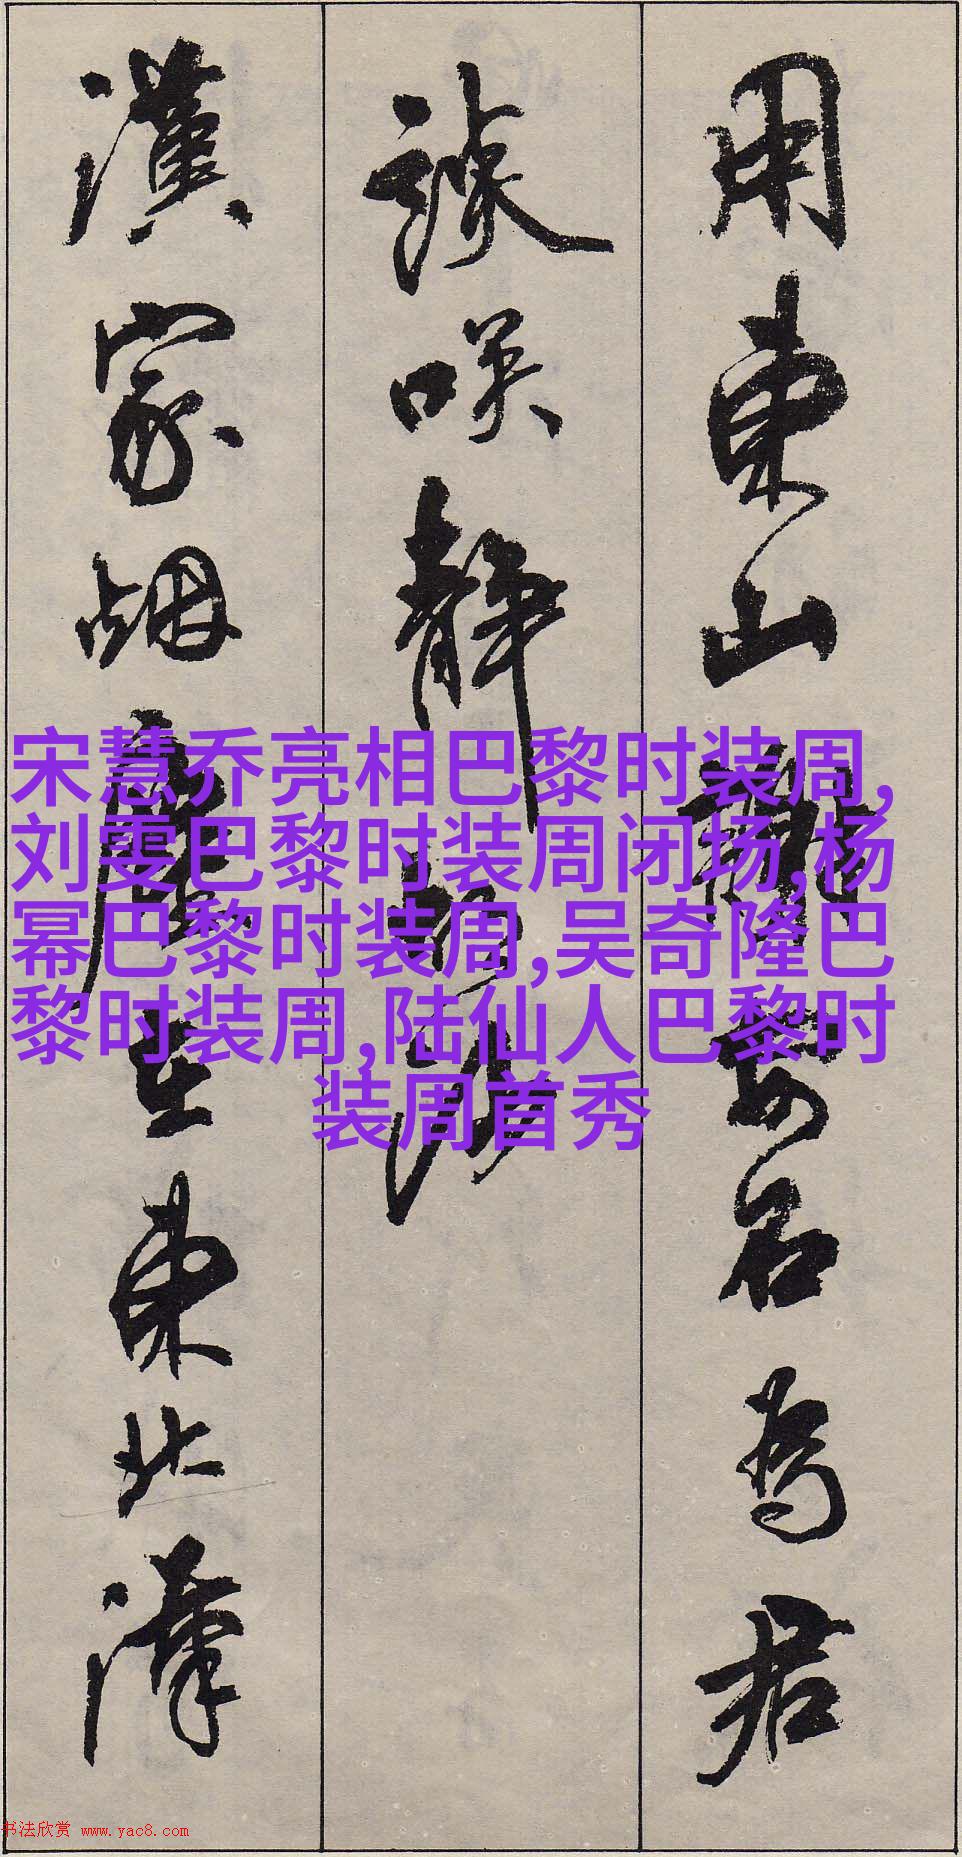 用東山謝安石為君
談笑靜胡沙
漢家烟塵在東北漢
宋慧乔亮相巴黎时装周,
刘雯巴黎时装周闭场,杨
幂巴黎时装周,吴奇隆巴
黎时装周,陆仙人巴黎时
装周首秀
书法欣赏 www.yac8.com